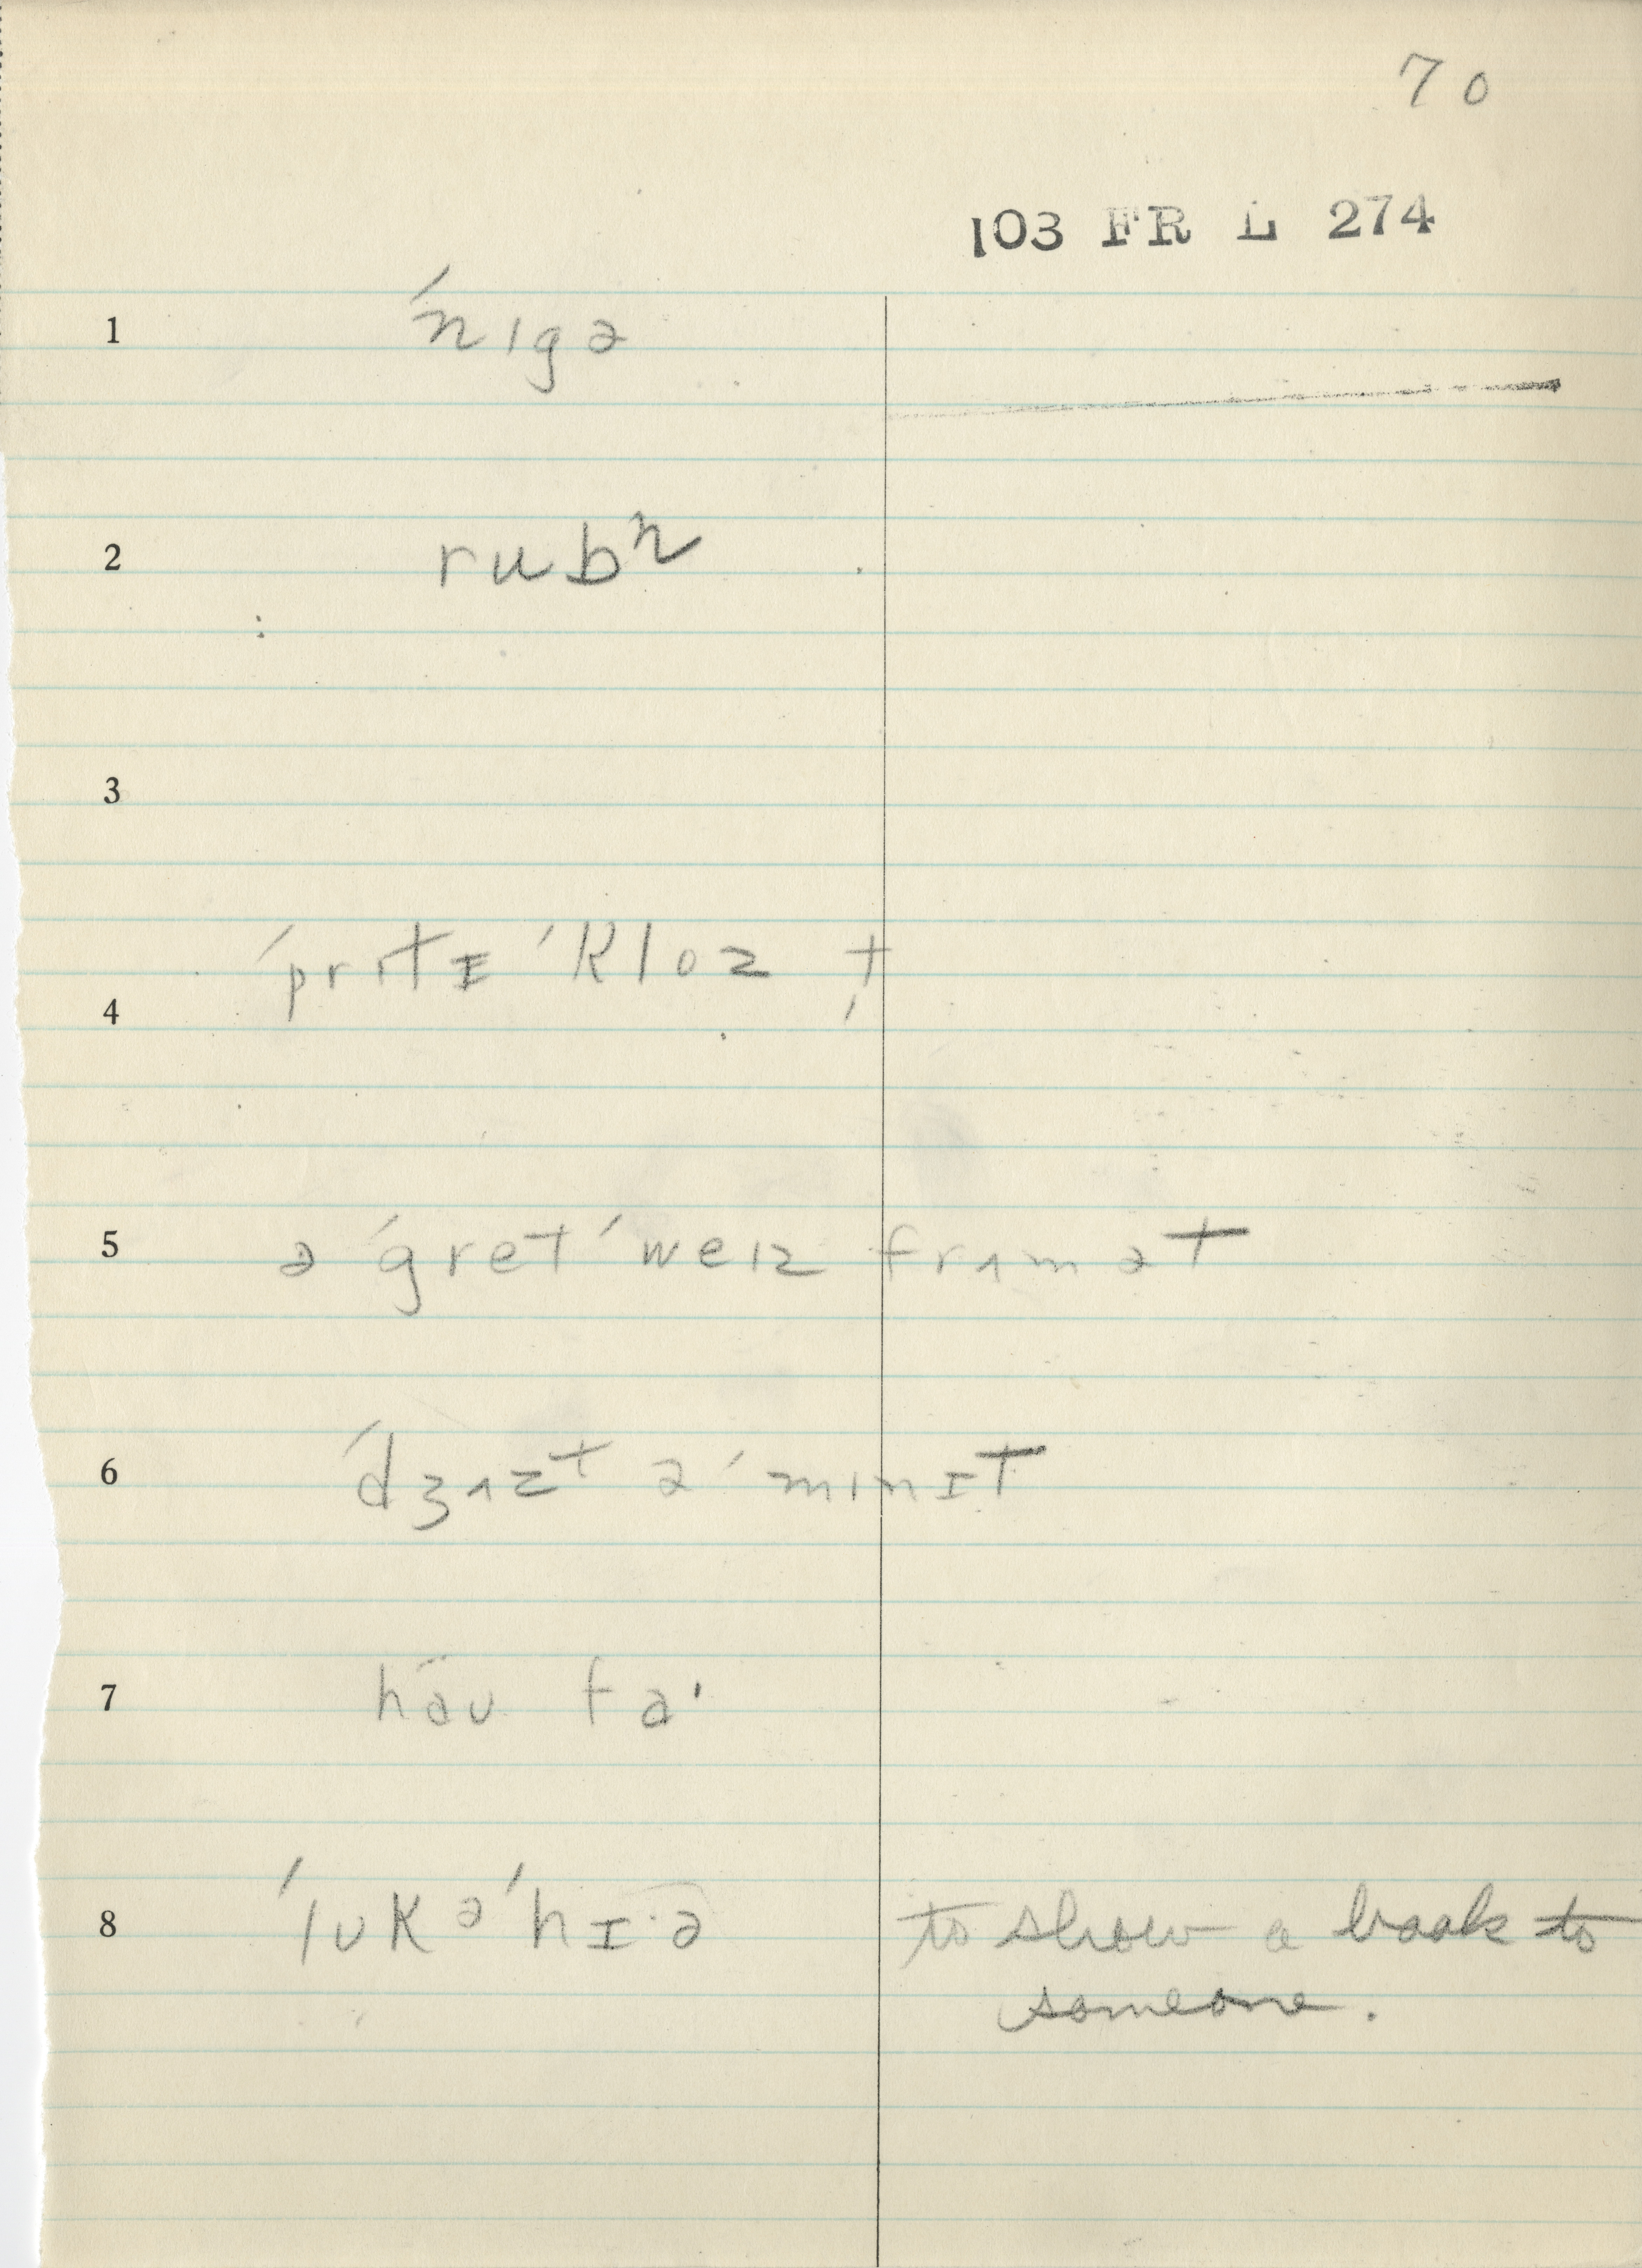 70
103 FR L 274
1 ˈnɪgə
2 rubⁿ
3
4 ˈprɪtɪ ˈkloz t̗
5 ə ˈgret ˈweɪz frʌm ət
6 ˈdʒʌzt ə ˈmɪnɪt
7 hau fa'
8 ˈlʊk ə ˈhɪ·ə to show a book to
someone.